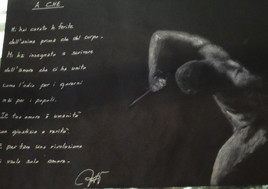 A CHE
Mi hai curato le ferite
dell'anima prima che del corpo.
Mi hai insegnato a scrivere
dell'amore che ci ha unito
come l'odio per i governi
mai per i popoli.
Il tuo amore è umanità
con giustizia e verità.
E per fare una rivoluzione
ci vuole solo amore.